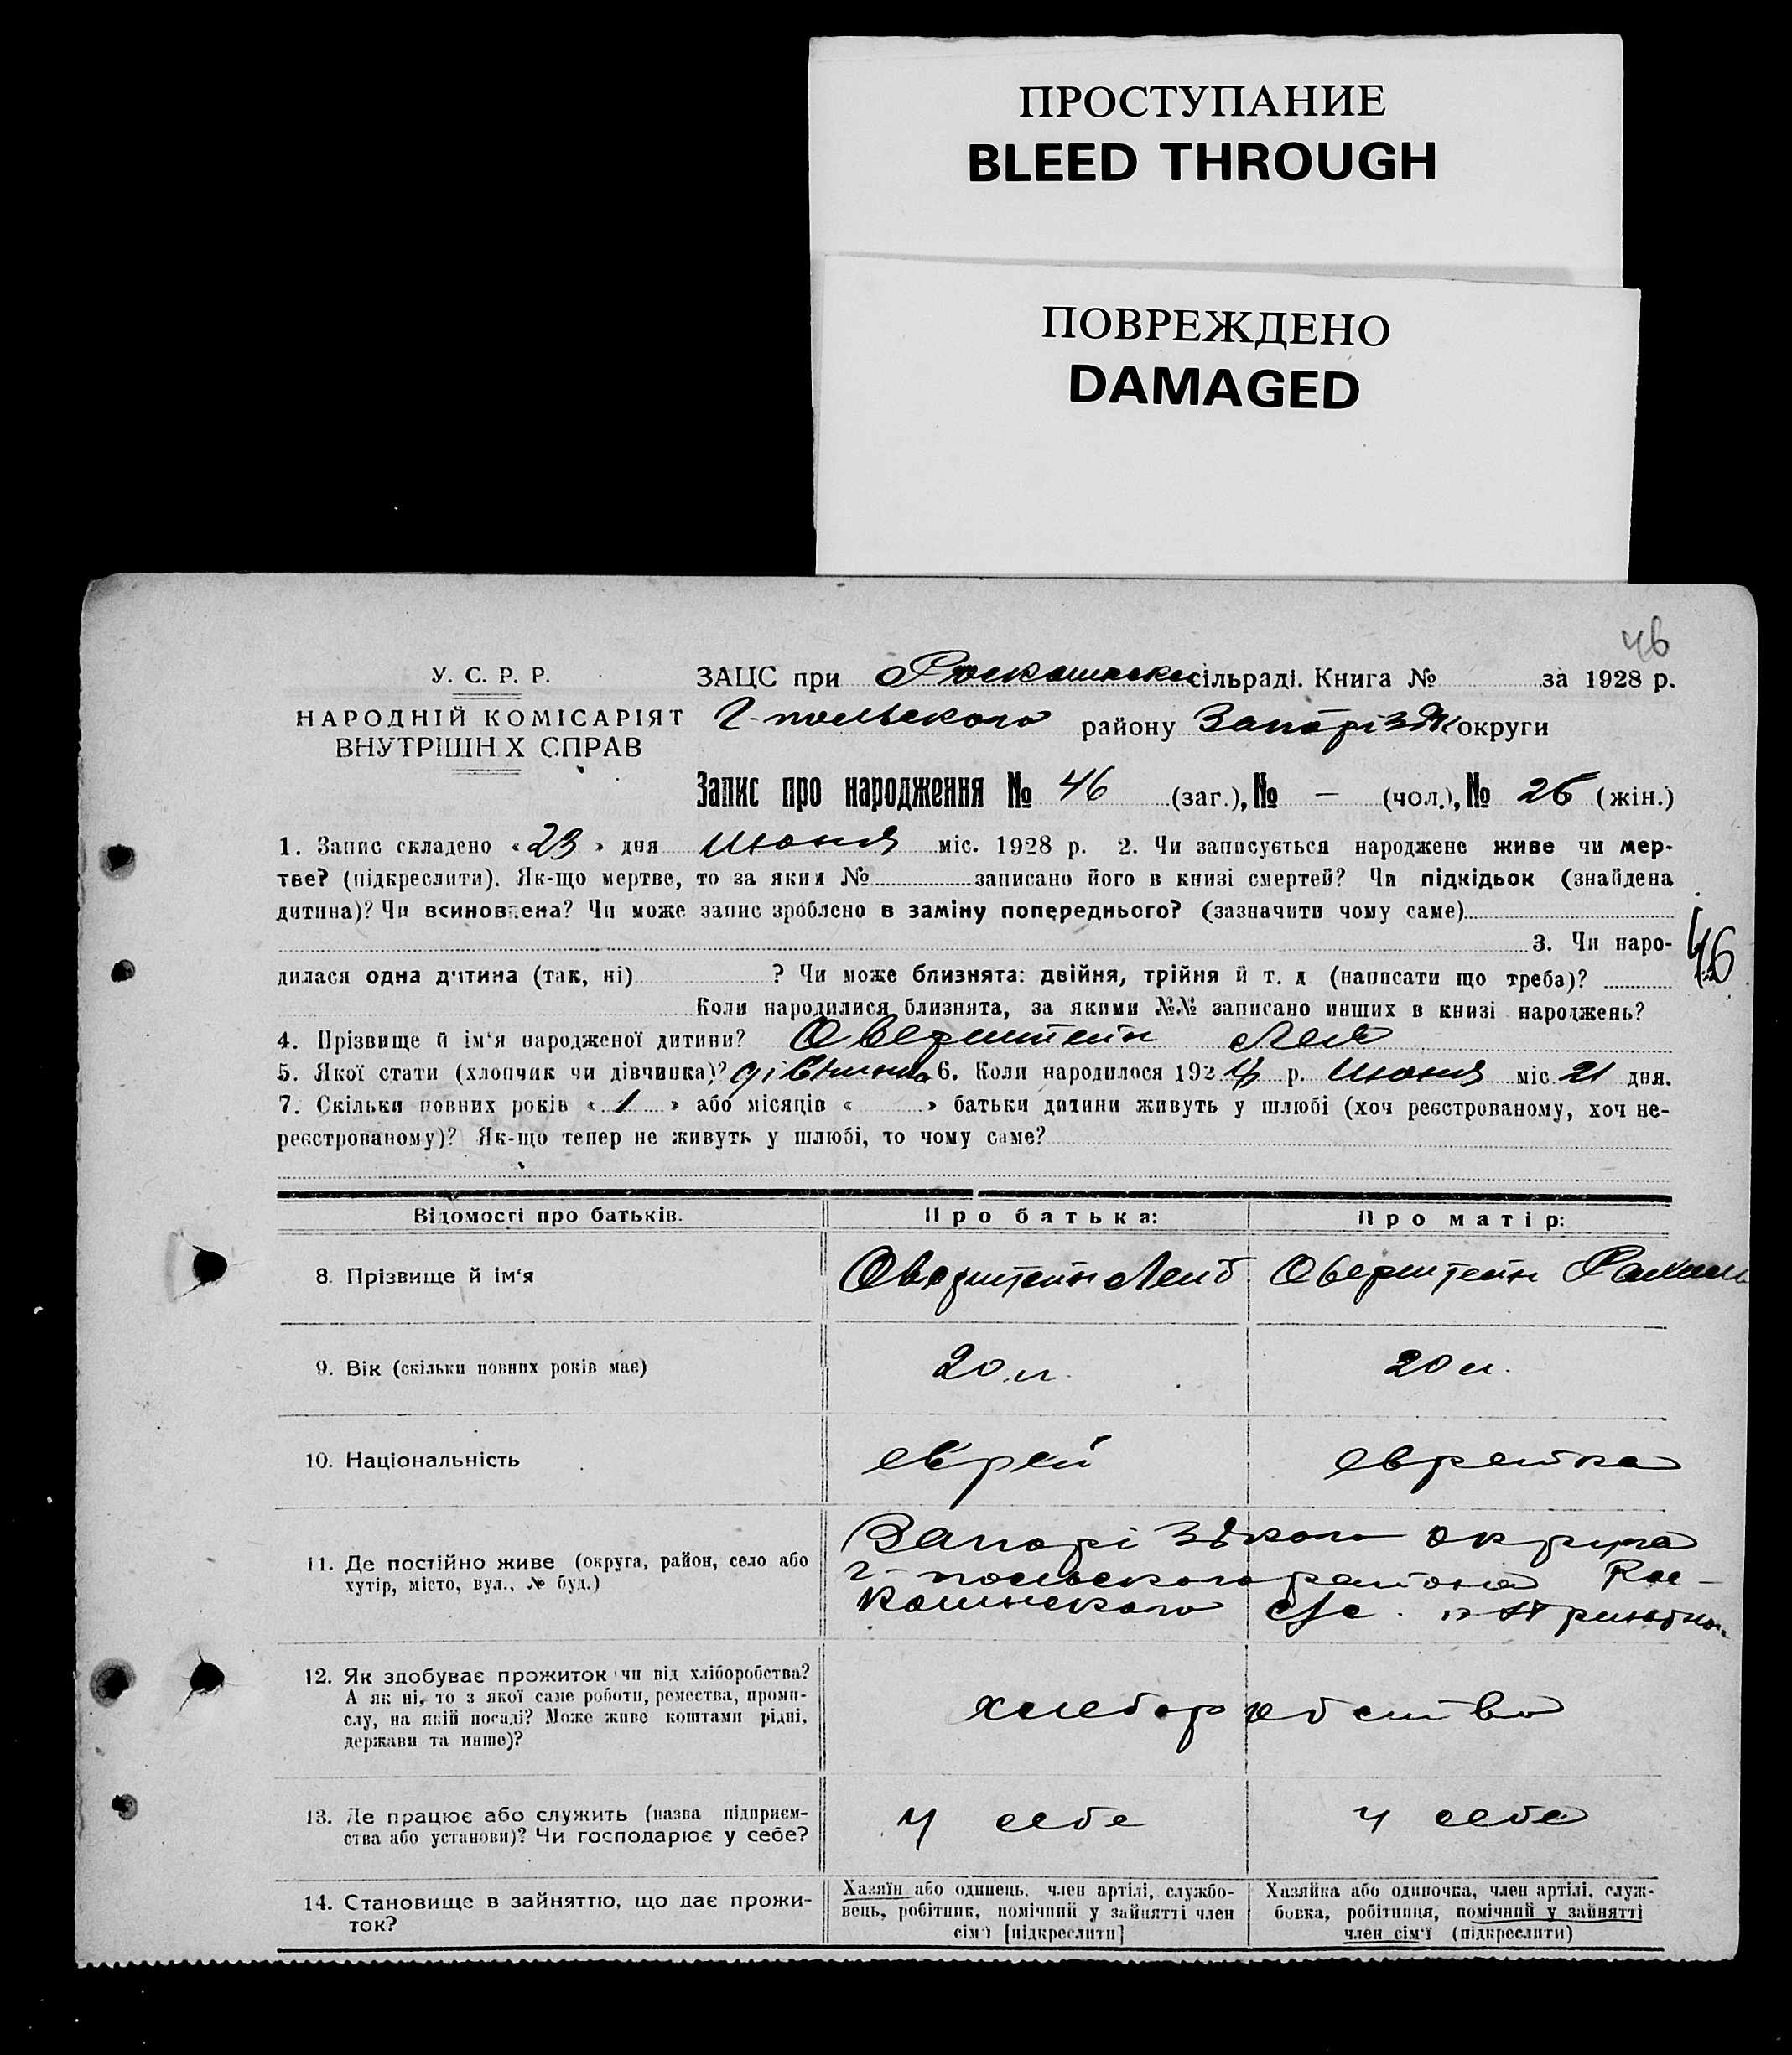 ПРОСТУПАНИЕ
BLEED THROUGH
ПОВРЕЖДЕНО
DAMAGED
46
У. С. Р. Р.
НАРОДНІЙ КОМІСАРІЯТ
ВНУТРІШН Х СПРАВ
ЗАЦС при сільраді. Книга № за 1928 р.
Г-польского району Запорізьк округи
Запис про народження № 46 (заг.), № — (чол.), № 26 (жін.)
1. Запис складено «23» дня июня міс. 1928 р. 2. Чи записується народжене живе чи мер-
тве? (підкреслити). Як-що мертве, то за яким № записано його в книзі смертей? Чи підкідьок (знайдена
дитина)? Чи всиновлена? Чи може запис зроблено в заміну попереднього? (зазначити чому саме)
3. Чи наро-
46
дилася одна дитина (так, ні) ? Чи може близнята: двійня, трійня й т. д (написати що треба)?
Коли народилися близнята, за якими №№ записано инших в книзі народжень?
4. Прізвище й ім'я народженої дитини? Оверштейн
5. Якої стати (хлопчик чи дівчинка)? дівчинка 6. Коли народилося 192 р. июня міс. 21 дня.
7. Скільки повних років «1» або місяців « » батьки дитини живуть у шлюбі (хоч реєстрованому, хоч не-
реєстрованому)? Як-що тепер не живуть у шлюбі, то чому саме?
Відомості про батьків. Про батька: Про матір:
8. Прізвище й ім'я Оверштейн Лейб Оверштейн
9. Вік (скільки повних років має) 20 л. 20 л.
10. Національність еврей еврейка
11. Де постійно живе (округа, район, село або
хутір, місто, вул., № буд.)
Запорізького округа
Г-польского района Рос-
кошнского с/с.
12. Як здобуває прожиток чи від хліборобства?
А як ні, то з якої саме роботи, ремества, проми-
слу, на якій посаді? Може живе коштами рідні,
держави та инше)?
хлеборобство
13. Де працює або служить (назва підприєм-
ства або установи)? Чи господарює у себе?
у себе у себе
14. Становище в зайняттю, що дає прожи-
ток?
Хазяїн або одинець, член артілі, службо-
вець, робітник, помічний у зайнятті член
сім'ї [підкреслити]
Хазяйка або одиночка, член артілі, служ-
бовка, робітниця, помічний у зайнятті
член сім'ї (підкреслити)